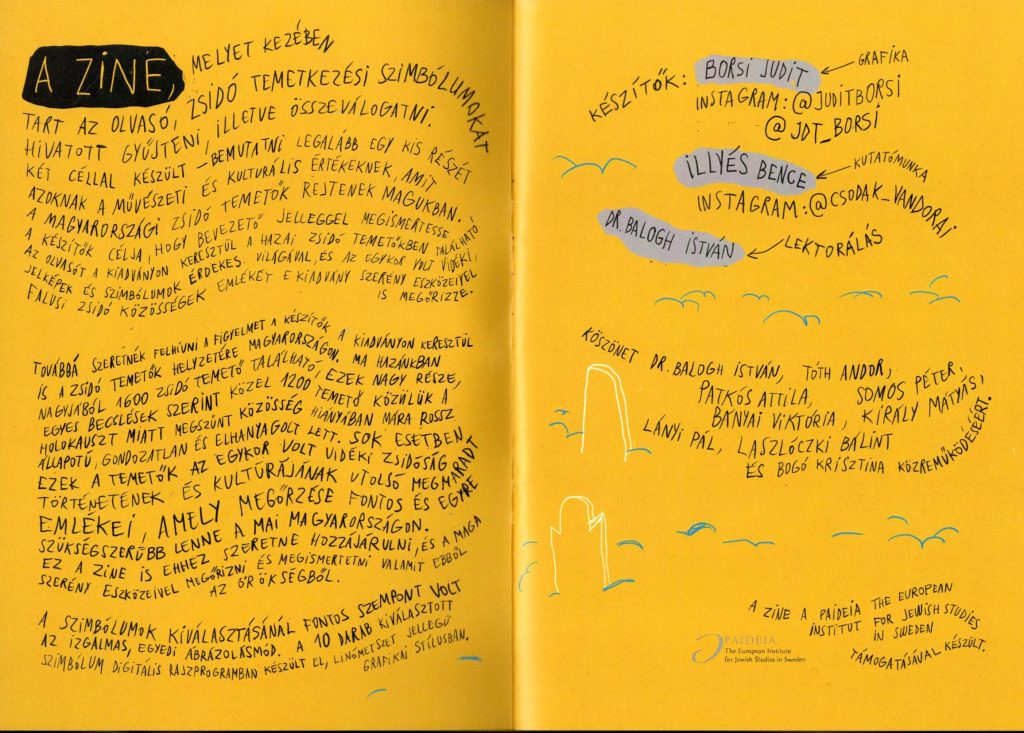 A ZINE, MELYET KEZÉBEN
TART AZ OLVASÓ, ZSIDÓ TEMETKEZÉSI SZIMBÓLUMOKAT
HIVATOTT GYŰJTENI, ILLETVE ÖSSZEVÁLOGATNI.
KÉT CÉLLAL KÉSZÜLT – BEMUTATNI LEGALÁBB EGY KIS RÉSZÉT
AZOKNAK A MŰVÉSZETI ÉS KULTURÁLIS ÉRTÉKEKNEK, AMIT
A MAGYARORSZÁGI ZSIDÓ TEMETŐK REJTENEK MAGUKBAN.
A KÉSZÍTŐK CÉLJA, HOGY BEVEZETŐ JELLEGGEL MEGISMERTESSE
AZ OLVASÓT A KIADVÁNYON KERESZTÜL A HAZAI ZSIDÓ TEMETŐKBEN TALÁLHATÓ
JELKÉPEK ÉS SZIMBÓLUMOK ÉRDEKES VILÁGÁVAL, ÉS AZ EGYKOR VOLT VIDÉKI,
FALUSI ZSIDÓ KÖZÖSSÉGEK EMLÉKÉT E KIADVÁNY SZERÉNY ESZKÖZEIVEL
IS MEGŐRIZZE.
TOVÁBBÁ SZERETNÉK FELHÍVNI A FIGYELMET A KÉSZÍTŐK A KIADVÁNYON KERESZTÜL
IS A ZSIDÓ TEMETŐK HELYZETÉRE MAGYARORSZÁGON. MA HAZÁNKBAN
NAGYJÁBÓL 1600 ZSIDÓ TEMETŐ TALÁLHATÓ, EZEK NAGY RÉSZE,
EGYES BECSLÉSEK SZERINT KÖZEL 1200 TEMETŐ KÖZÜLÜK A
HOLOKAUSZT MIATT MEGSZŰNT KÖZÖSSÉG HIÁNYÁBAN MÁRA ROSSZ
ÁLLAPOTÚ, GONDOZATLAN ÉS ELHANYAGOLT LETT. SOK ESETBEN
EZEK A TEMETŐK AZ EGYKOR VOLT VIDÉKI ZSIDÓSÁG
TÖRTÉNETÉNEK ÉS KULTÚRÁJÁNAK UTOLSÓ MEGMARADT
EMLÉKEI, AMELY MEGŐRZÉSE FONTOS ÉS EGYRE
SZÜKSÉGSZERŰBB LENNE A MAI MAGYARORSZÁGON.
EZ A ZINE IS EHHEZ SZERETNE HOZZÁJÁRULNI, ÉS A MAGA
SZERÉNY ESZKÖZEIVEL MEGŐRIZNI ÉS MEGISMERTETNI VALAMIT EBBŐL
AZ ÖRÖKSÉGBŐL.
A SZIMBÓLUMOK KIVÁLASZTÁSÁNÁL FONTOS SZEMPONT VOLT
AZ IZGALMAS, EGYEDI ÁBRÁZOLÁSMÓD. A 10 DARAB KIVÁLASZTOTT
SZIMBÓLUM DIGITÁLIS RAJZPROGRAMBAN KÉSZÜLT EL, LINÓMETSZET JELLEGŰ
GRAFIKAI STÍLUSBAN.
KÉSZÍTŐK: BORSI JUDIT GRAFIKA
INSTAGRAM: @JUDITBORSI
@JDT_BORSI
ILLYÉS BENCE KUTATÓMUNKA
INSTAGRAM: @CSODAK_VANDORAI
DR. BALOGH ISTVÁN LEKTORÁLÁS
KÖSZÖNET DR. BALOGH ISTVÁN, TÓTH ANDOR,
PATKÓS ATTILA, SOMOS PÉTER,
BÁNYAI VIKTÓRIA, KIRÁLY MÁTYÁS,
LÁNYI PÁL, LASZLÓCZKI BÁLINT
ÉS BOGÓ KRISZTINA KÖZREMŰKÖDÉSÉÉRT.
A ZINE A PAIDEIA THE EUROPEAN
INSTITUT FOR JEWISH STUDIES
IN SWEDEN
TÁMOGATÁSÁVAL KÉSZÜLT.
PAIDEIA
The European Institute
for Jewish Studies in Sweden